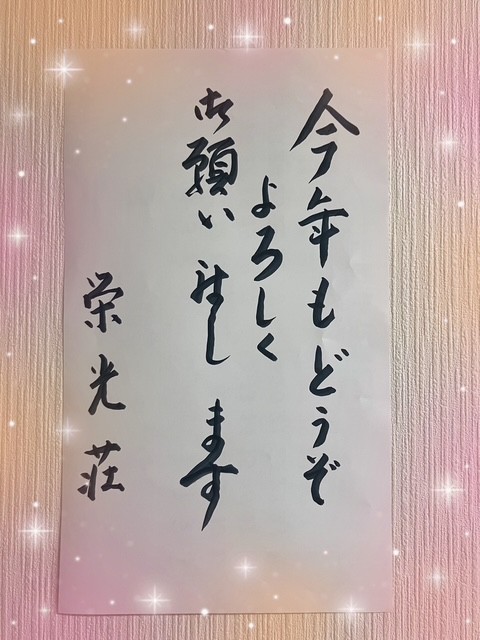 今年もどうぞ
よろしく
御願い致し ます
栄光荘